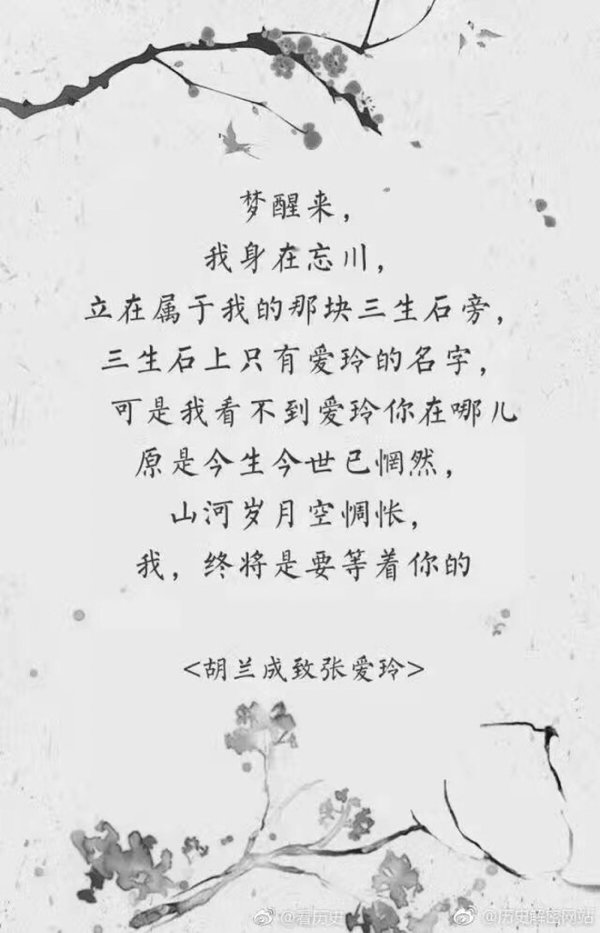 梦醒来，
我身在忘川，
立在属于我的那块三生石旁，
三生石上只有爱玲的名字，
可是我看不到爱玲你在哪儿
原是今生今世已惘然，
山河岁月空惆怅，
我，终将是要等着你的
<胡兰成致张爱玲>
@看历史 @历史解密网站